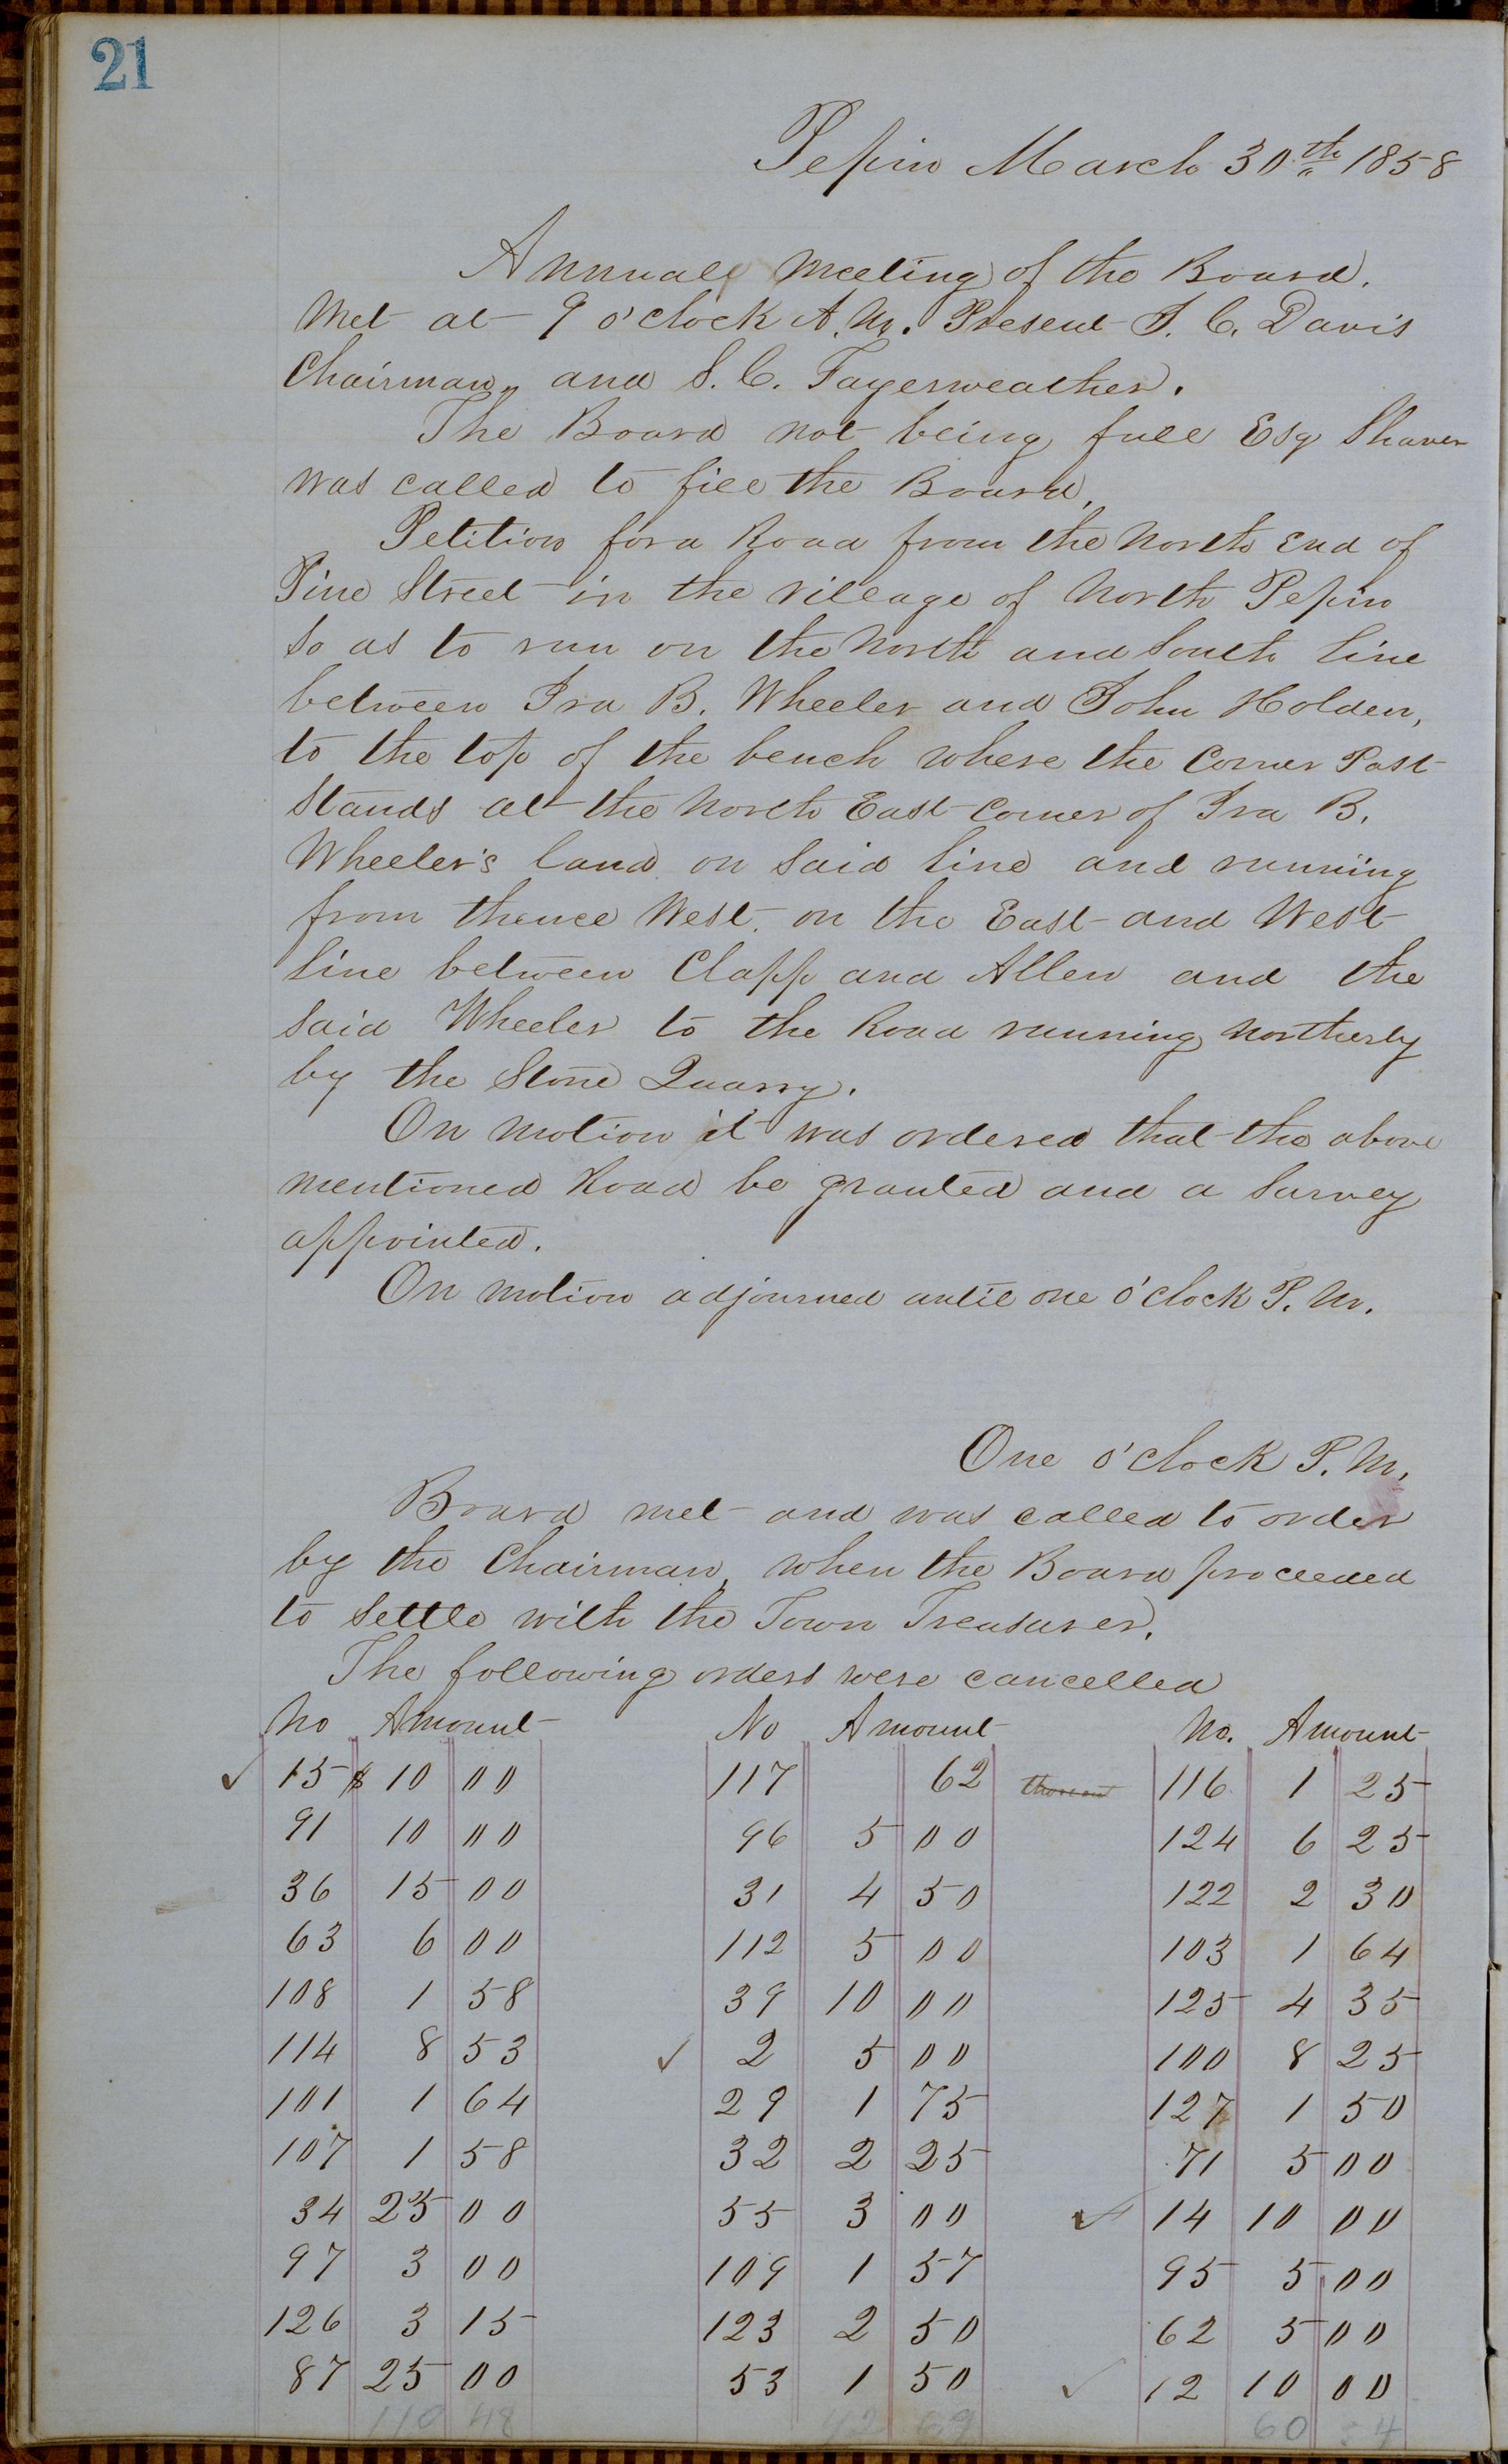 21
Pepin March 30th 1858
Annual meeting of the Board.
Met at 9 o'clock A.M. Present J. C. Davis
Chairman, and S. C. Fayerweather.
The Board not being full Esq Shaver
was called to fill the Board,
Petition for a Road from the North End of
Pine Street in the village of North Pepin
So as to run on the North and South line
between Ira B. Wheeler and John Holden,
to the top of the bench where the Corner Post
Stands at the North East corner of Ira B.
Wheeler's land on Said line and running
from thence West on the East and West
line between Clapp and Allen and the
said Wheeler to the Road running Northerly
by the Stone Quarry.
On motion it was ordered that the above
mentioned Road be granted and a Survey
appointed.
On motion adjourned until one o'clock P.M.
One o'clock P.M.
Board met and was called to order
by the Chairman, when the Board proceeded
to Settle with the Town Treasurer.
The following orders were cancelled
No Amount No Amount No. Amount
✓ 15 $ 10 00 117 62 116 1 25
91 10 00 96 5 00 124 6 25
36 15 00 31 4 50 122 2 30
63 6 00 112 5 00 103 1 64
108 1 58 39 10 00 125 4 35
114 8 53 ✓ 2 5 00 100 8 25
101 1 64 29 1 75 127 1 50
107 1 58 32 2 25 71 5 00
34 25 00 55 3 00 ✓ 14 10 00
97 3 00 109 1 57 95 5 00
126 3 15 123 2 50 62 5 00
87 25 00 53 1 50 ✓ 12 10 00
110 48 42 69 60 54